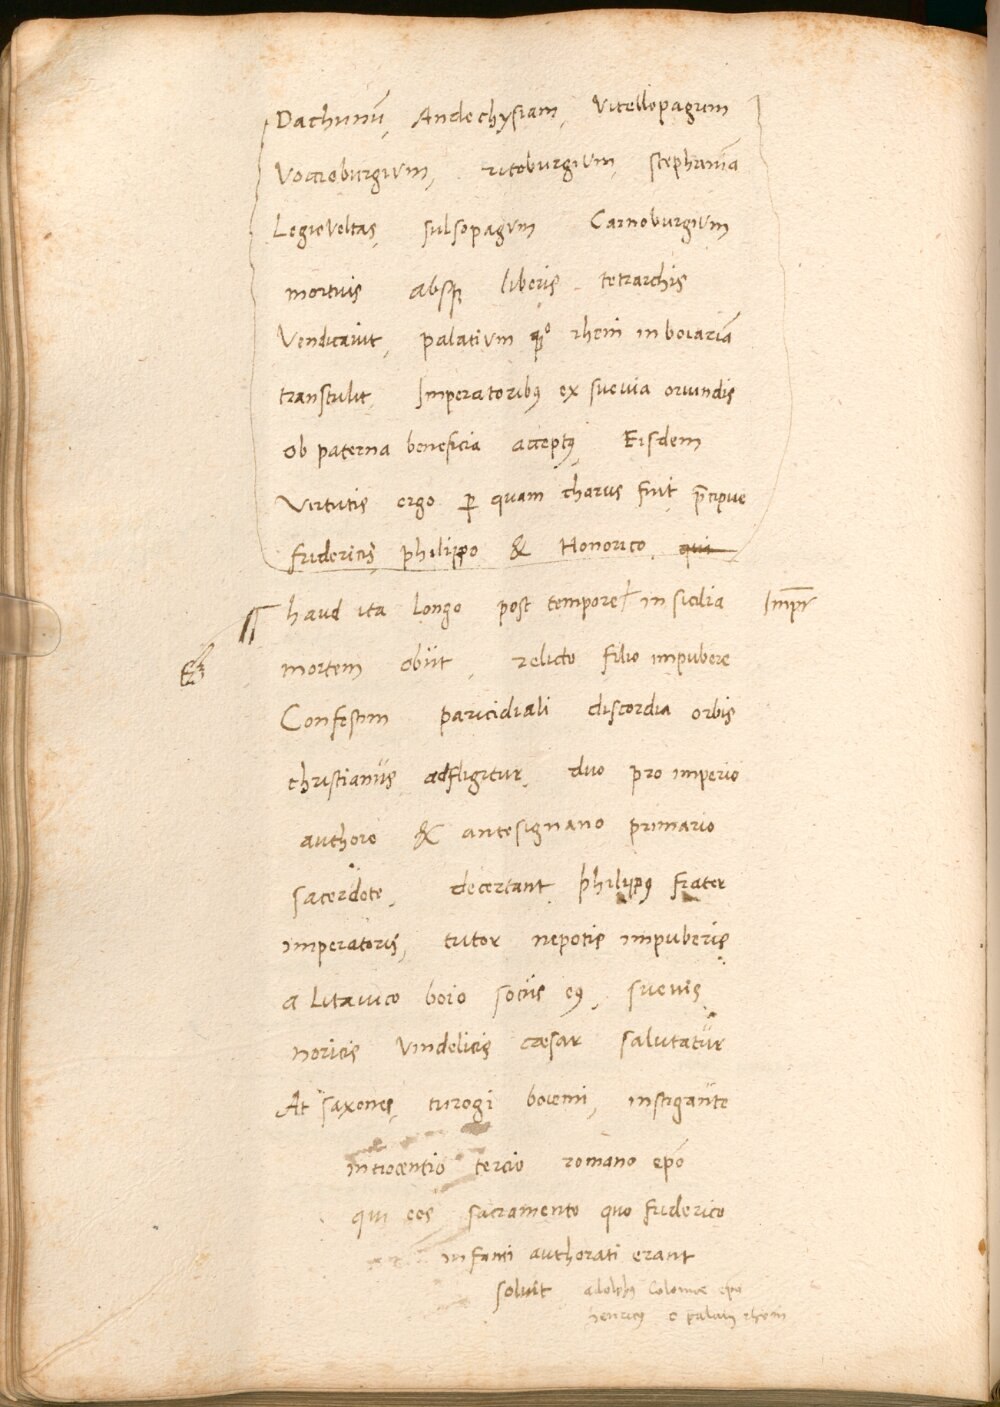 Dachunū, Andechysiam, Vitellopagum
Vocroburgium, ritoburgium, stephaniā
Legioveltas, sulsopagum Carnoburgium
mortuis absq; liberis tetrarchis
Vendicavit, palatium rheni in boiariā
transtulit, Imperatoribꝰ ex suevia oriundis
ob paterna beneficia acceptꝰ, Eisdem
Virtutis ergo ꝑ quam charus fuit p̄cipue
fridericis, philippo & Honorico qui
haud ita longo post tempore in sicilia Imp̄r
mortem obiit, relicto filio impubere
Confestim paricidiali discordia orbis
christianus adfligitur, duo pro imperio
authore & antesignano primario
sacerdote, decertant philippꝰ frater
imperatoris, tutor nepotis impuberis
a Litavico boio sociis eꝰ, suevis
noricis Vindelicis cæsar salutatur
At saxones, turogi boiemi, instigante
innocentio tercio romano epō
qui eos sacramento quo friderico
infanti authorati erant
soluit adolphꝰ Coloniæ epō
henricꝰ c palati rheni